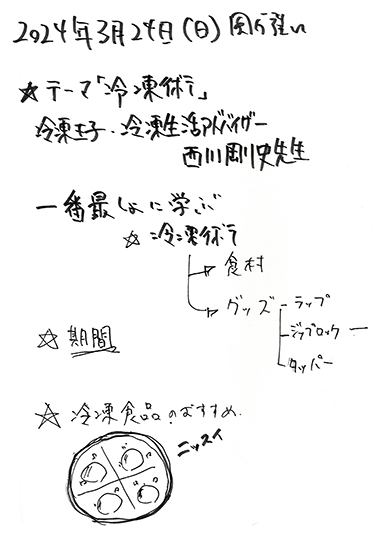 2024年3月24日(日)
☆テーマ「冷凍術」
冷凍王子・冷凍生活アドバイザー
西川剛史先生
一番最しょに学ぶ
☆冷凍術
食材
グッズ ラップ
ジップロック
タッパー
☆期間
☆冷凍食品のおすすめ
ニッスイ